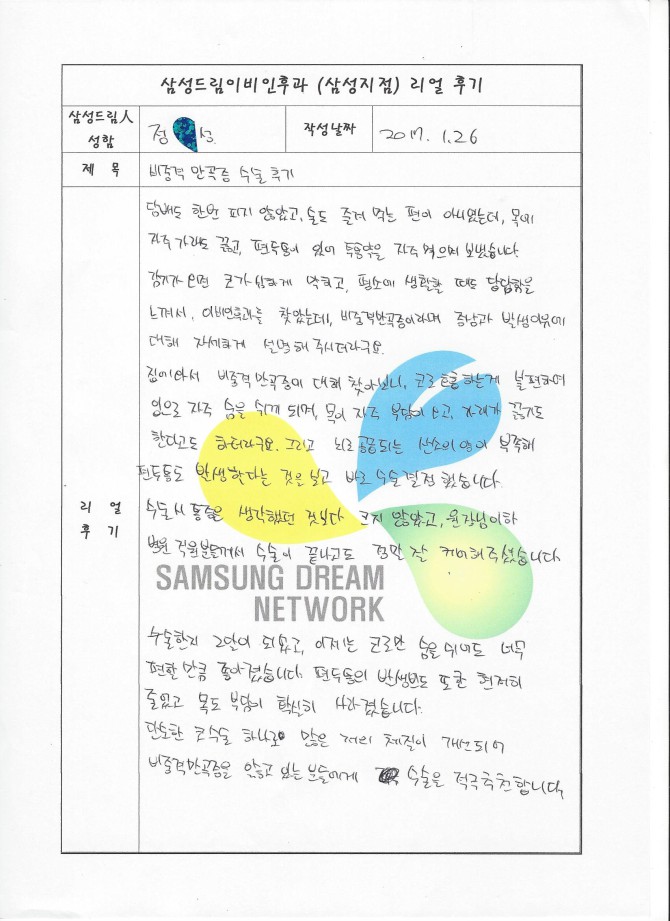 삼성드림이비인후과 (삼성지점) 리얼 후기
삼성드림人
성함
정 석
작성날짜
2017. 1. 26
제 목
비중격 만곡증 수술 후기
담배도 한번 피지 않았고, 술도 즐겨 먹는 편이 아니였는데, 목에
자주 가래도 끓고, 편두통이 있어 두통약을 자주 먹으며 보냈습니다.
감기가 오면 코가 심하게 막히고, 평소에 생활할 때도 답답함을
느껴서, 이비인후과를 찾았는데, 비중격만곡증이라며 증상과 발생이유에
대해 자세하게 설명해 주시더라구요.
집에와서 비중격만곡증에 대해 찾아보니, 코로 호흡하는게 불편하여
입으로 자주 숨을 쉬게 되며, 목이 자주 부담이 오고, 가래가 끓기도
한다고도 하더라구요. 그리고 뇌로 공급되는 산소의 양이 부족해
편두통도 발생한다는 것을 보고 바로 수술 결정 했습니다.
리 얼
후 기
수술시 통증은 생각했던 것보다 크지 않았고, 원장님이하
병원 직원분들께서 수술이 끝나고도 정말 잘 케어해주셨습니다
SAMSUNG DREAM
NETWORK
수술한지 2달이 되었고, 이제는 코로만 숨을 쉬어도 너무
편할 만큼 좋아졌습니다. 편두통의 발생빈도 또한 현저히
줄었고 목도 부담이 확실히 사라졌습니다.
단순한 코수술 하나로 많은 저의 체질이 개선되어
비중격만곡증을 앓고 있는 분들에게 수술을 적극추천합니다.